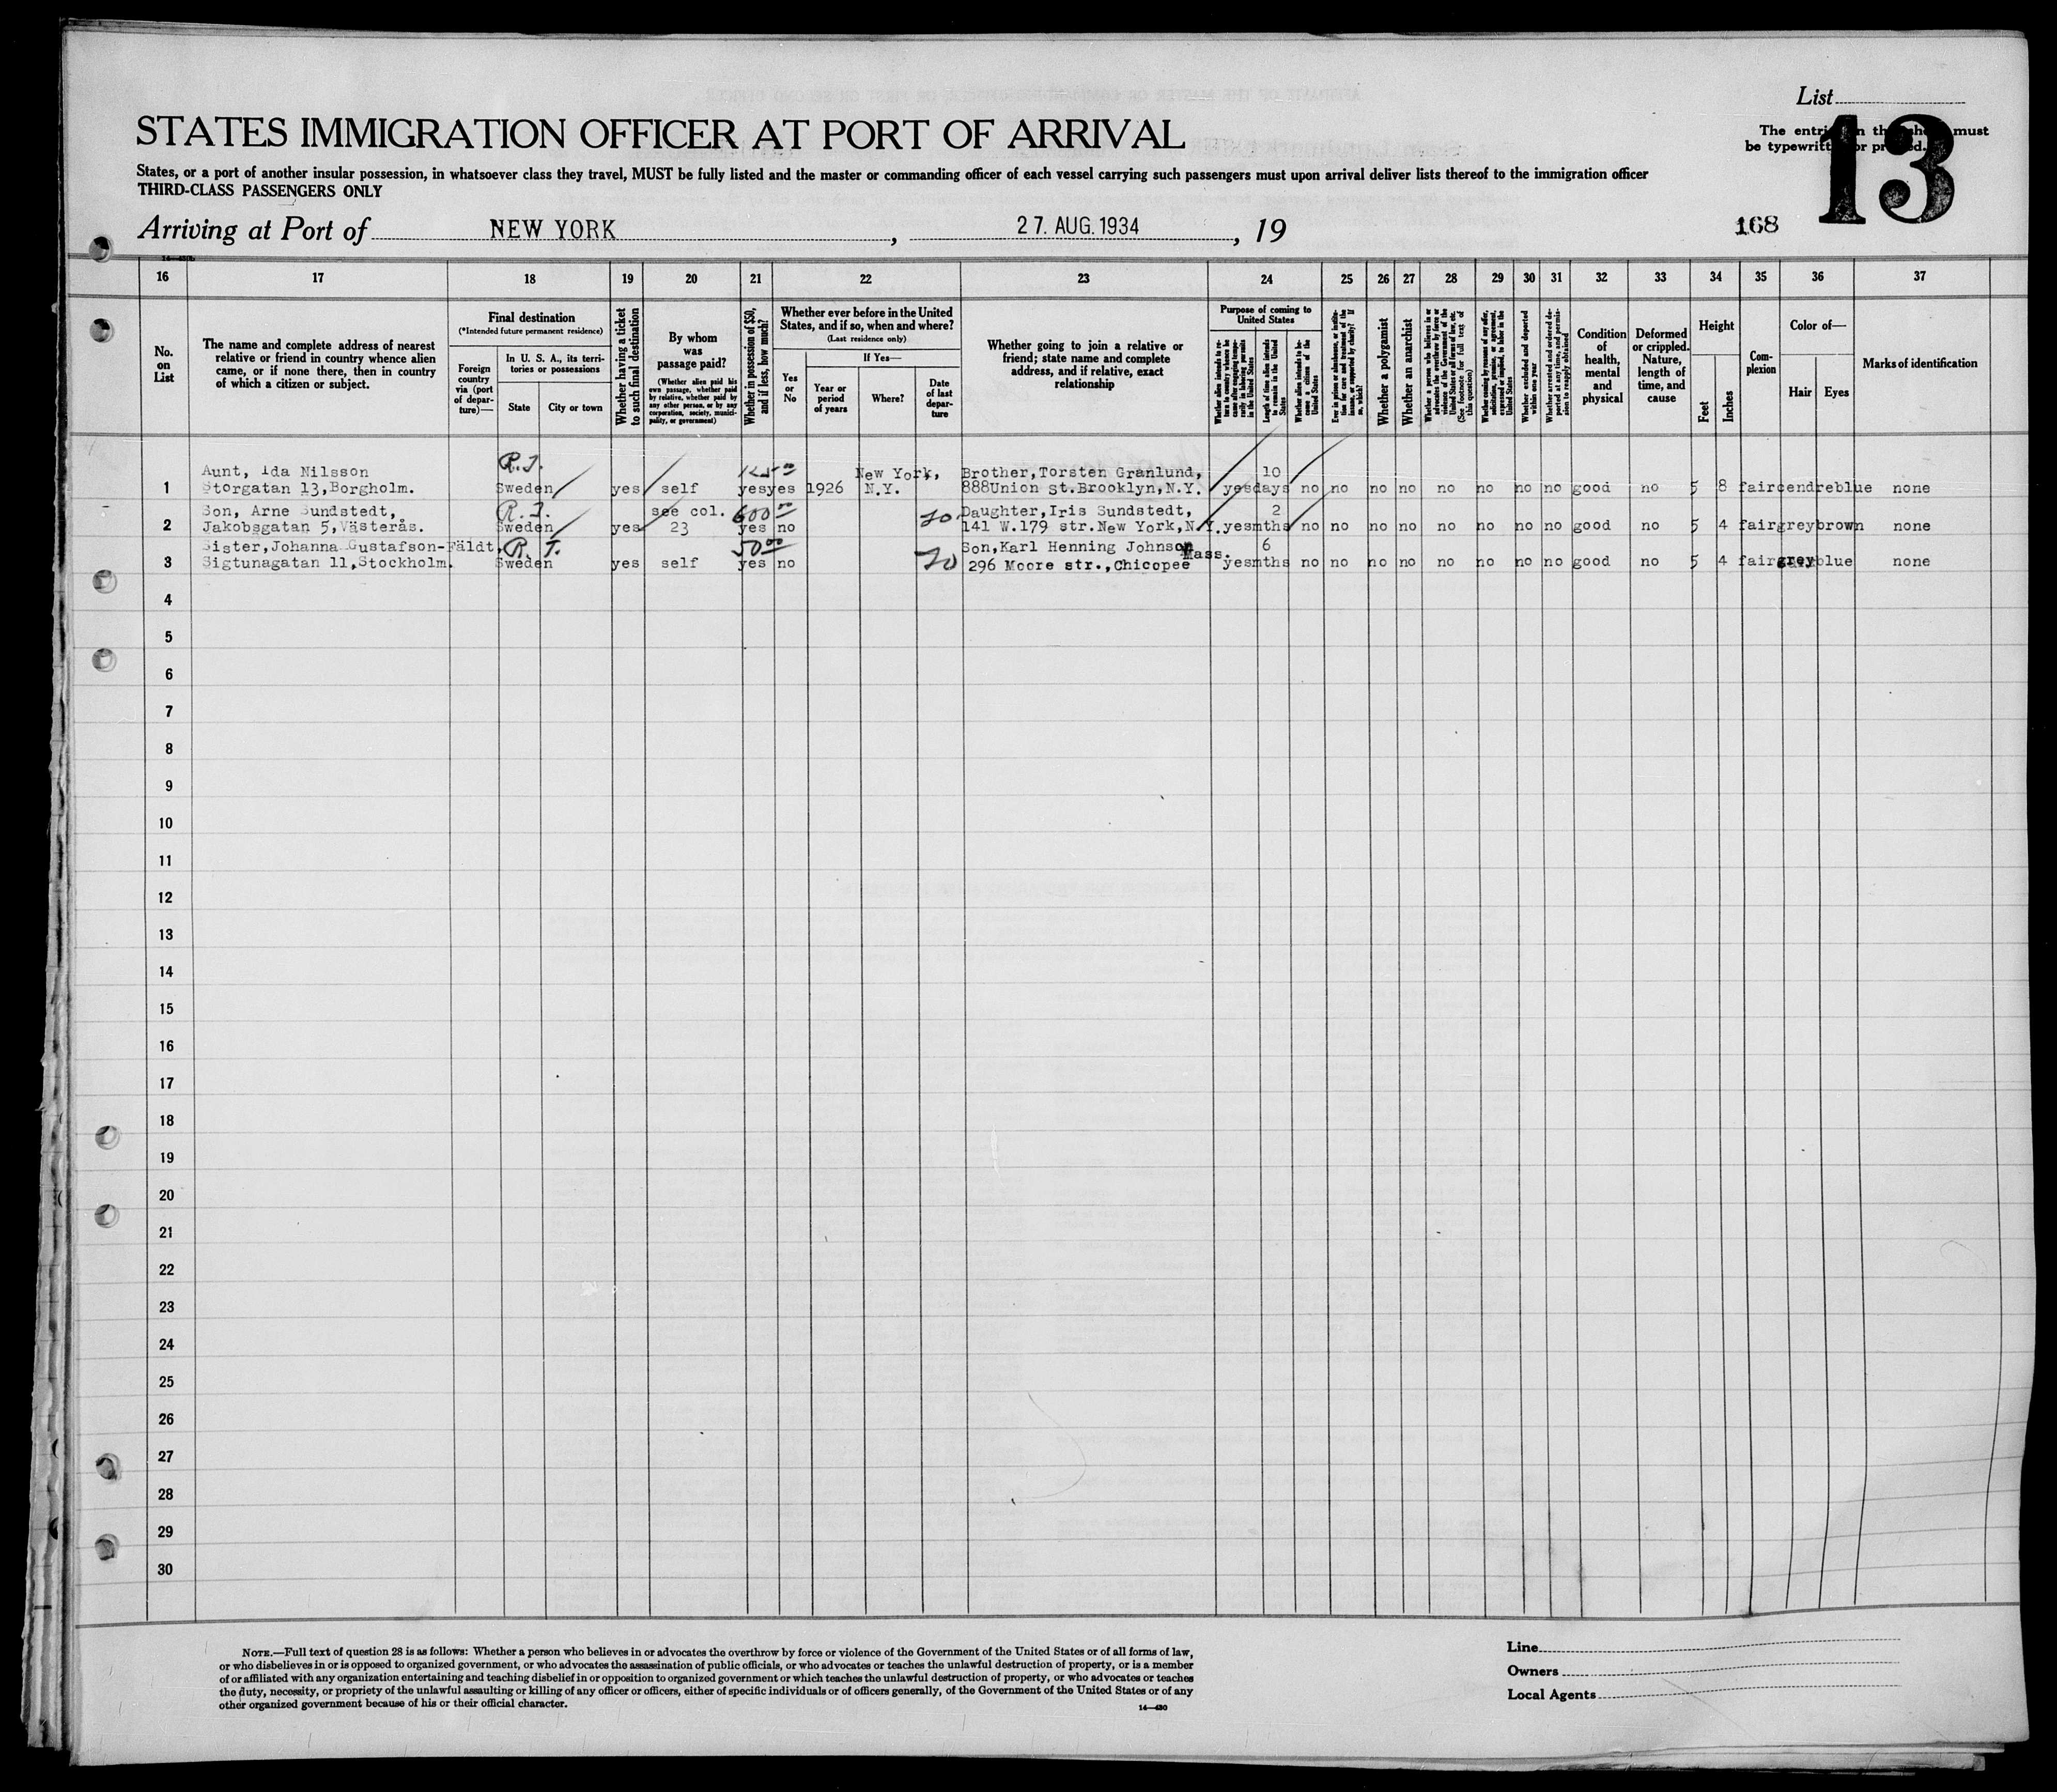 List
STATES IMMIGRATION OFFICER AT PORT OF ARRIVAL
The entries on this sheet must
be typewritten or printed.
13
States, or a port of another insular possession, in whatsoever class they travel, MUST be fully listed and the master or commanding officer of each vessel carrying such passengers must upon arrival deliver lists thereof to the immigration officer
THIRD-CLASS PASSENGERS ONLY
Arriving at Port of NEW YORK, 27. AUG. 1934, 19
168
16 17 18 19 20 21 22 23 24 25 26 27 28 29 30 31 32 33 34 35 36 37
No. on List
The name and complete address of nearest
relative or friend in country whence alien
came, or if none there, then in country
of which a citizen or subject.
Final destination
(*Intended future permanent residence)
Foreign country via (port of departure)—
In U. S. A., its territories or possessions
State
City or town
Whether having a ticket to such final destination
By whom was passage paid?
(Whether alien paid his own passage, whether paid by relative, whether paid by any other person, or by any corporation, society, municipality, or government)
Whether in possession of $50, and if less, how much?
Whether ever before in the United States, and if so, when and where?
(Last residence only)
Yes or No
If Yes—
Year or period of years
Where?
Date of last departure
Whether going to join a relative or
friend; state name and complete
address, and if relative, exact
relationship
Purpose of coming to United States
Whether alien intends to return to country whence he came after engaging temporarily in laboring pursuits in the United States
Length of time alien intends to remain in the United States
Whether alien intends to become a citizen of the United States
Ever in prison or almshouse, or institution for care and treatment of the insane, or supported by charity? If so, which?
Whether a polygamist
Whether an anarchist
Whether a person who believes in or advocates the overthrow by force or violence of the Government of the United States or all forms of law, etc. (See footnote for full text of this question)
Whether coming by reason of any offer, solicitation, promise, or agreement, expressed or implied, to labor in the United States
Whether excluded and deported within one year
Whether arrested and ordered deported at any time, and permission to reapply obtained
Condition of health, mental and physical
Deformed or crippled. Nature, length of time, and cause
Height
Feet
Inches
Complexion
Color of—
Hair
Eyes
Marks of identification
Aunt, Ida Nilsson R.T. 125 00 New York, Brother,Torsten Granlund, 10
1 Storgatan 13,Borgholm. Sweden yes self yes yes 1926 N.Y. 888Union st.Brooklyn,N.Y. yes days no no no no no no no no good no 5 8 fair cendre blue none
Son, Arne Sundstedt, R.T. see col. 600 00 Daughter,Iris Sundstedt, 2
2 Jakobsgatan 5,Västerås. Sweden yes 23 yes no 141 W.179 str.New York,N.Y. yes mths no no no no no no no no good no 5 4 fair grey brown none
Sister,Johanna Gustafson-Fäldt, R.T. 50 00 Son,Karl Henning Johnson Mass. 6
3 Sigtunagatan 11,Stockholm. Sweden yes self yes no 296 Moore str.,Chicopee yes mths no no no no no no no no good no 5 4 fair grey blue none
4
5
6
7
8
9
10
11
12
13
14
15
16
17
18
19
20
21
22
23
24
25
26
27
28
29
30
NOTE.—Full text of question 28 is as follows: Whether a person who believes in or advocates the overthrow by force or violence of the Government of the United States or of all forms of law,
or who disbelieves in or is opposed to organized government, or who advocates the assassination of public officials, or who advocates or teaches the unlawful destruction of property, or is a member
of or affiliated with any organization entertaining and teaching disbelief in or opposition to organized government or which teaches the unlawful destruction of property, or who advocates or teaches
the duty, necessity, or propriety of the unlawful assaulting or killing of any officer or officers, either of specific individuals or of officers generally, of the Government of the United States or of any
other organized government because of his or their official character.
14—430
Line
Owners
Local Agents